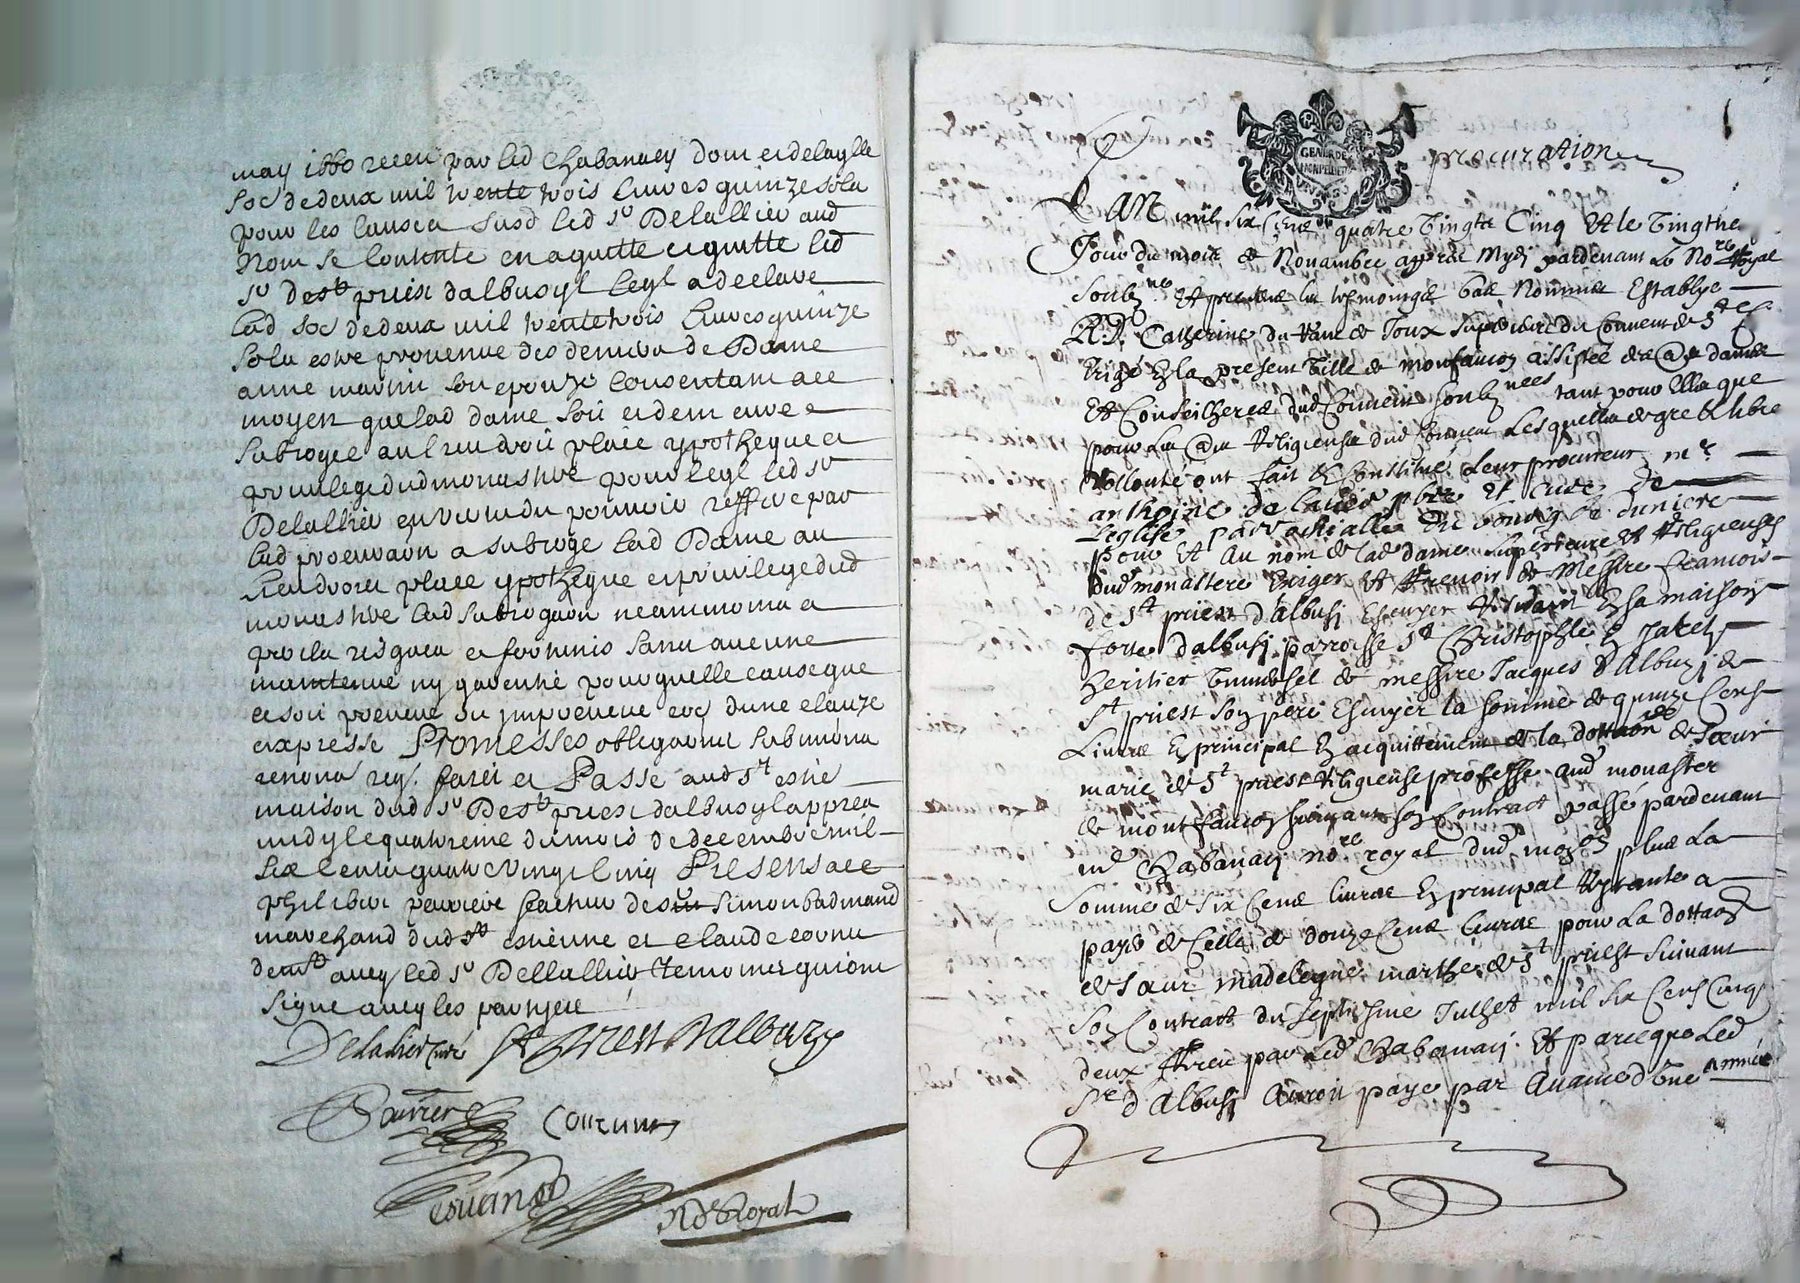 may 1660 receu par led Chabanacy dont et de laqlle
soe de deux mil trente trois livres quinze solz
pour les causes susd led Sr Delallier aud
nom se contente en a quitte et quitte led
Sr de St priest dalbusy lequel a declare
lad soe de deux mil trente trois livres quinze
solz estre provenue des deniers de Dame
anne marin son epouze consentant a ce
moyen que lad dame soit et demeure
subrogee au lieu droit place ypotheque et
privilege dud monastere pour lequel led Sr
Delallier en vertu du pouvoir a
lad procuraon a subroge lad Dame au
lieu droit place ypotheque et privilege dud
monastere lad subrogaon neammoins a
ses risques et fortunes sans aucune
maintenue ny garentie pour quelle cause que
ce soit preveue ou impreveue avec dune clauze
expresse Promesses obligaons submions
renons Faict et Passe aud St estie
maison dud Sr De St priest dalbusy appres
midy le quatreine du mois de decembre mil
six cents quatre vingt cinq Presens a ce
philibert perriere facteur Simon badinand
marchand dud St estienne et claude cornu
demt avey led Sr Dellallier temoins quiont
signe avey les parties
Delallier curé St Priest Dalbuzy
Cornu
Nore Royal
GENER DE
MONPELIER
procuration
L'AN mil six Cens quatre vingts Cinq et le vingthe
Jour du mois de Nouambre apres Mydi pardeuant Le Nore Royal
soubzne et presens les tesmoings bas Nommes Establye
R. De Catherine du de Joux superieure du Couuent de Ste C
Erige En la present Ville de monfaucon assistée des dames
Et Conseilheres dud Couuent soubznees tant pour Elles que
pour Les Religieuses dud Couuent Lesquelles de gre & libre
Vollonté ont fait & Constitué Leur procureur mre
anthoine de lallier pbre et curé de
l'eglise parrochialle du bourg de duniere
pour et au nom de lad dame superieure et Religieuses
dud monastere Exiger et Receuoir de Messire francois
de St priest d'albusj Escuyer Residant En sa maison
forte d'albusj paroisse St Christophle En Jarets
heritier vniuersel de messire Jacques d'Albuzj de
St priest son pere Escuyer la somme de quinze Cens
Liures En principal En acquittement de la dottaon de soeur
marie de St priest Religieuse professe aud monaster
de montfaucon suiuant son Contract passé pardeuant
md Chabanacy nore royal dud mon plus La
somme de six Cens liures En principal Restante a
payer de Celle de douze Cens liures pour La dottaon
de soeur madeleyne marthe de St priest suiuant
son Contract du septiesme Julhet mil six Cens Cinqe
deux Receu par Led Chabanacy. Et parceque Led
Sre d'Albusj auroit payé par auance d'vne année